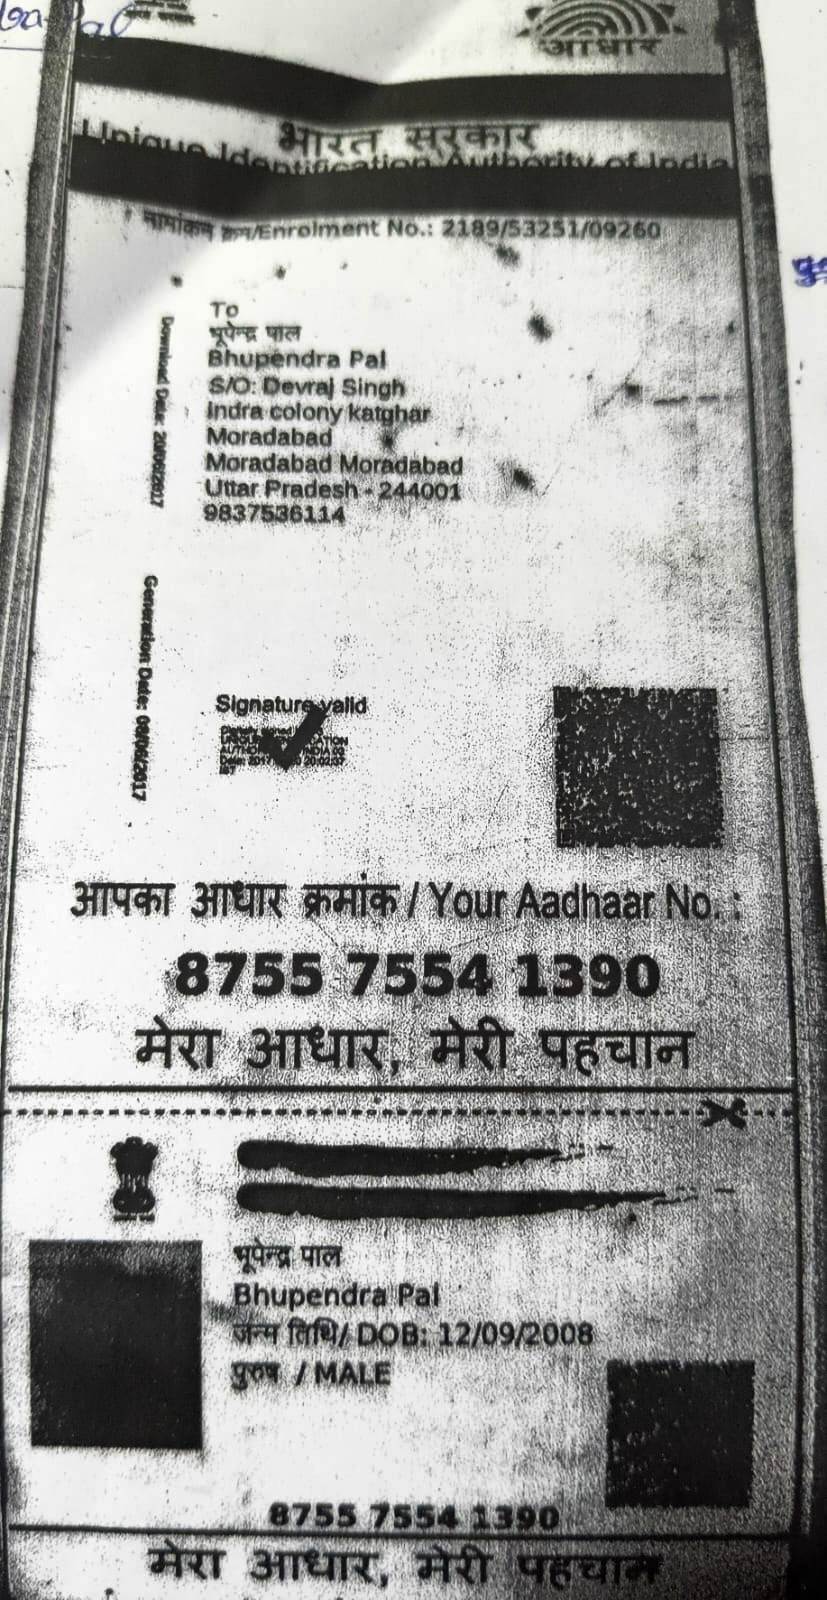 आधार
भारत सरकार
Unique Identification Authority of India
नामांकन क्रम/Enrolment No.: 2189/53251/09260
To
भूपेन्द्र पाल
Bhupendra Pal
S/O: Devraj Singh
Indra colony katghar
Moradabad
Moradabad Moradabad
Uttar Pradesh - 244001
9837536114
Download Date: 20/06/2017
Generation Date: 08/06/2017
Signature valid
आपका आधार क्रमांक / Your Aadhaar No. :
8755 7554 1390
मेरा आधार, मेरी पहचान
भूपेन्द्र पाल
Bhupendra Pal
जन्म तिथि/ DOB: 12/09/2008
पुरुष / MALE
8755 7554 1390
मेरा आधार, मेरी पहचान